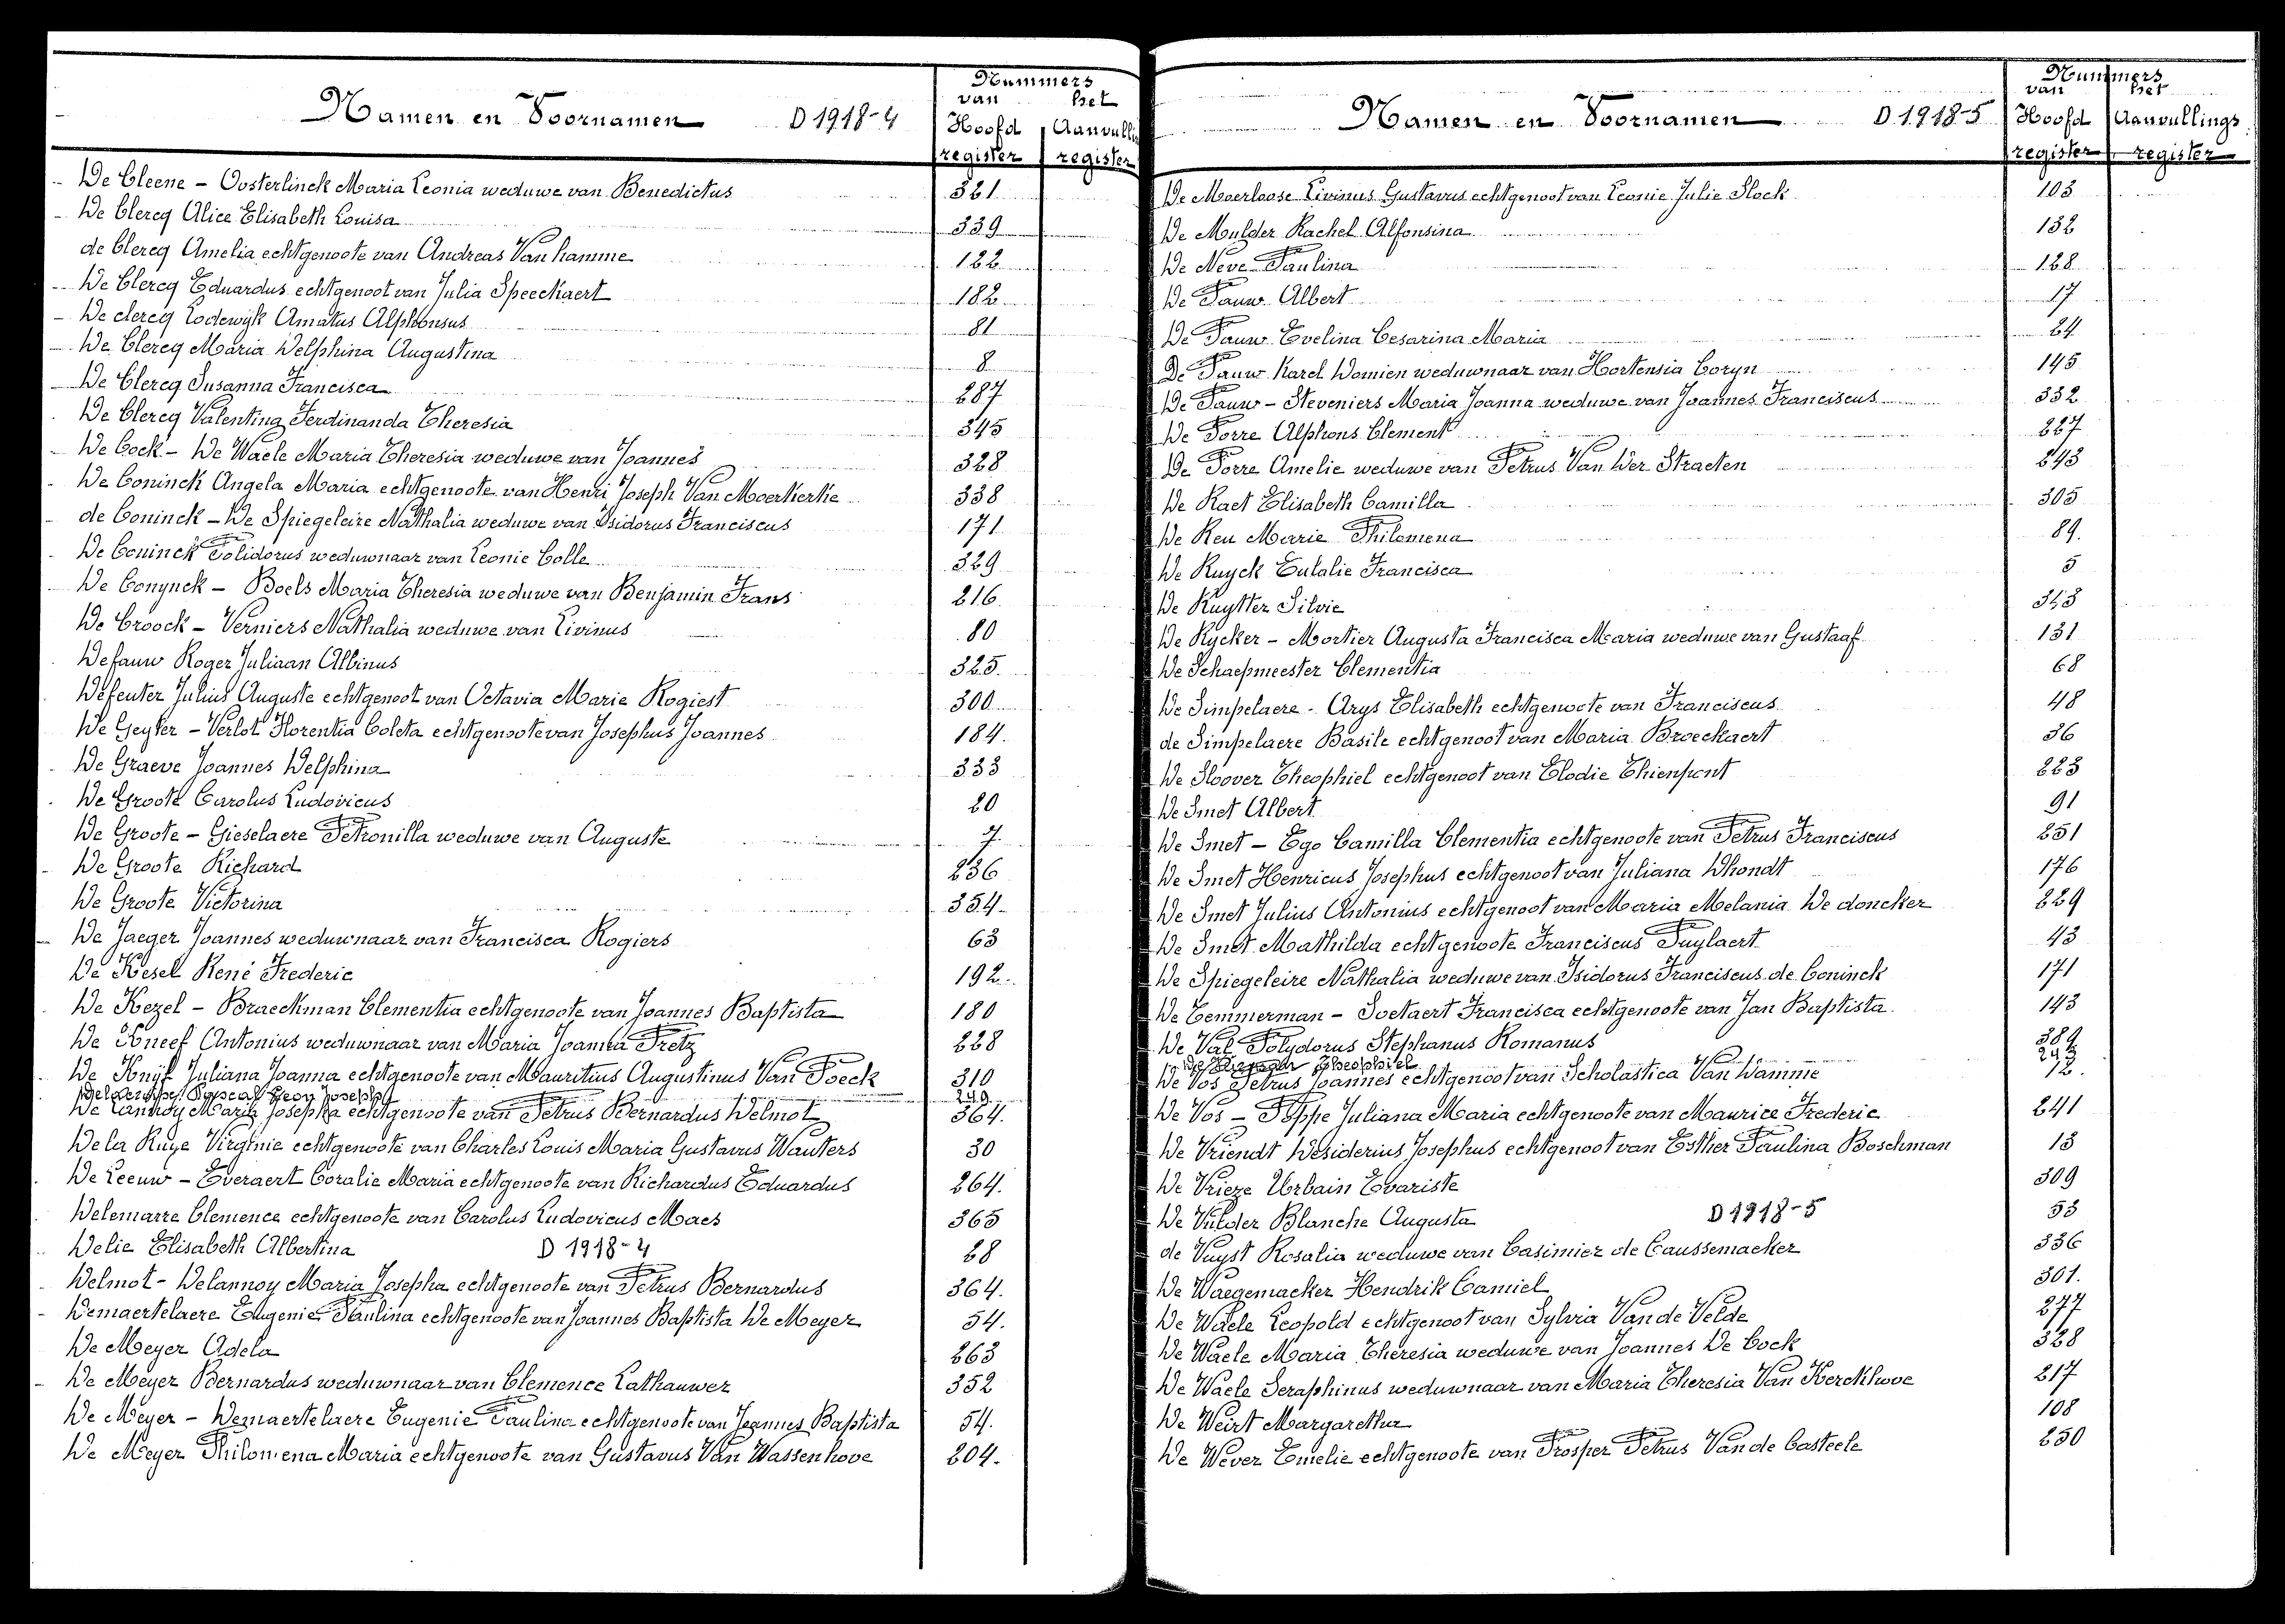 Namen en Voornamen D 1918-4 Nummers van het Hoofd register Aanvulli register
De Cleene - Oosterlinck Maria Leonia weduwe van Benedictus 321
De Clercq Alice Elisabeth Louisa 339
de Clercq Amelia echtgenoote van Andreas Van hamme 122
De Clercq Eduardus echtgenoot van Julia Speeckaert 182
De clercq Lodewijk Amatus Alphonsus 81
De Clercq Maria Delphina Augustina 8
De Clercq Susanna Francisca 287
De Clercq Valentina Ferdinanda Theresia 345
De Cock - De Waele Maria Theresia weduwe van Joannes 328
De Coninck Angela Maria echtgenoote van Henri Joseph Van Moerkerke 338
de Coninck - De Spiegeleire Nathalia weduwe van Isidorus Franciscus 171
De Coninck Polidorus weduwnaar van Leonie Colle 329
De Conynck - Boels Maria Theresia weduwe van Benjamin Frans 216
De Croock - Verniers Nathalia weduwe van Livinus 80
Defauw Roger Juliaan Albinus 325
Defeuter Julius Auguste echtgenoot van Octavia Marie Rogiest 300
De Geyter - Verlot Florentia Coleta echtgenoote van Josephus Joannes 184
De Graeve Joannes Delphina 333
De Groote Carolus Ludovicus 20
De Groote - Gieselaere Petronilla weduwe van Auguste 7
De Groote Richard 236
De Groote Victorina 354
De Jaeger Joannes weduwnaar van Francisca Rogiers 63
De Kesel René Frederic 192
De Kezel - Braeckman Clementia echtgenoote van Joannes Baptista 180
De Kneef Antonius weduwnaar van Maria Joanna Pretz 228
De Knijf Juliana Joanna echtgenoote van Mauritius Augustinus Van Poeck 310
Pascal Leon Joseph 249
De Lannoy Maria Josepha echtgenoote van Petrus Bernardus Delmot 364.
De la Ruye Virginie echtgenoote van Charles Louis Maria Gustavus Wauters 30
De Leeuw - Everaert Coralie Maria echtgenoote van Richardus Eduardus 264.
Delemarre Clemence echtgenoote van Carolus Ludovicus Maes 365
Delie Elisabeth Albertina D 1918-4 28
Delmot - Delannoy Maria Josepha echtgenoote van Petrus Bernardus 364.
Demaertelaere Eugenie Paulina echtgenoote van Joannes Baptista De Meyer 54.
De Meyer Adela 263
De Meyer Bernardus weduwnaar van Clemence Lathauwer 352
De Meyer - Demaertelaere Eugenie Paulina echtgenoote van Joannes Baptista 54.
De Meyer Philomena Maria echtgenoote van Gustavus Van Wassenhove 204.
Namen en Voornamen D 1918-5 Nummers van het Hoofd register Aanvullings register
De Moerloose Livinus Gustavus echtgenoot van Leonie Julie Slock 103
De Mulder Rachel Alfonsina 132
De Neve Paulina 128
De Pauw Albert 17
De Pauw Evelina Cesarina Maria 24
De Pauw Karel Domien weduwnaar van Hortensia Coryn 145
De Pauw - Steveniers Maria Joanna weduwe van Joannes Franciscus 332
De Porre Alphons Clement 227
De Porre Amelie weduwe van Petrus Van Der Straeten 243
De Raet Elisabeth Camilla 305
De Reu Marie Philomena 89.
De Ruyck Eulalie Francisca 5
De Ruytter Silvie 343
De Rycker - Mortier Augusta Francisca Maria weduwe van Gustaaf 131
De Schaepmeester Clementia 68
De Simpelaere - Arys Elisabeth echtgenoote van Franciscus 48
de Simpelaere Basile echtgenoot van Maria Broeckaert 36
De Sloover Theophiel echtgenoot van Elodie Thienpont 223
De Smet Albert 91
De Smet - Ego Camilla Clementia echtgenoote van Petrus Franciscus 251
De Smet Henricus Josephus echtgenoot van Juliana Dhondt 176
De Smet Julius Antonius echtgenoot van Maria Melania De doncker 229
De Smet Mathilda echtgenoote Franciscus Puylaert 43
De Spiegeleire Nathalia weduwe van Isidorus Franciscus de Coninck 171
De Temmerman - Soetaert Francisca echtgenoote van Jan Baptista 143
De Val Polydorus Stephanus Romanus 389
Theophiel 242
De Vos Petrus Joannes echtgenoot van Scholastica Van Damme 12.
De Vos - Poppe Juliana Maria echtgenoote van Maurice Frederic 241
De Vriendt Desiderius Josephus echtgenoot van Esther Paulina Boschman 13
De Vrieze Urbain Evariste 309
De Vulder Blanche Augusta D 1918-5 53
de Vuyst Rosalia weduwe van Casimier de Caussemaeker 336
De Waegemaeker Hendrik Camiel 301.
De Waele Leopold echtgenoot van Sylvia Van de Velde 277
De Waele Maria Theresia weduwe van Joannes De Cock 328
De Waele Seraphinus weduwnaar van Maria Theresia Van Kerckhove 217
De Weirt Margaretha 108
De Wever Emelie echtgenoote van Prosper Petrus Van de Casteele 250